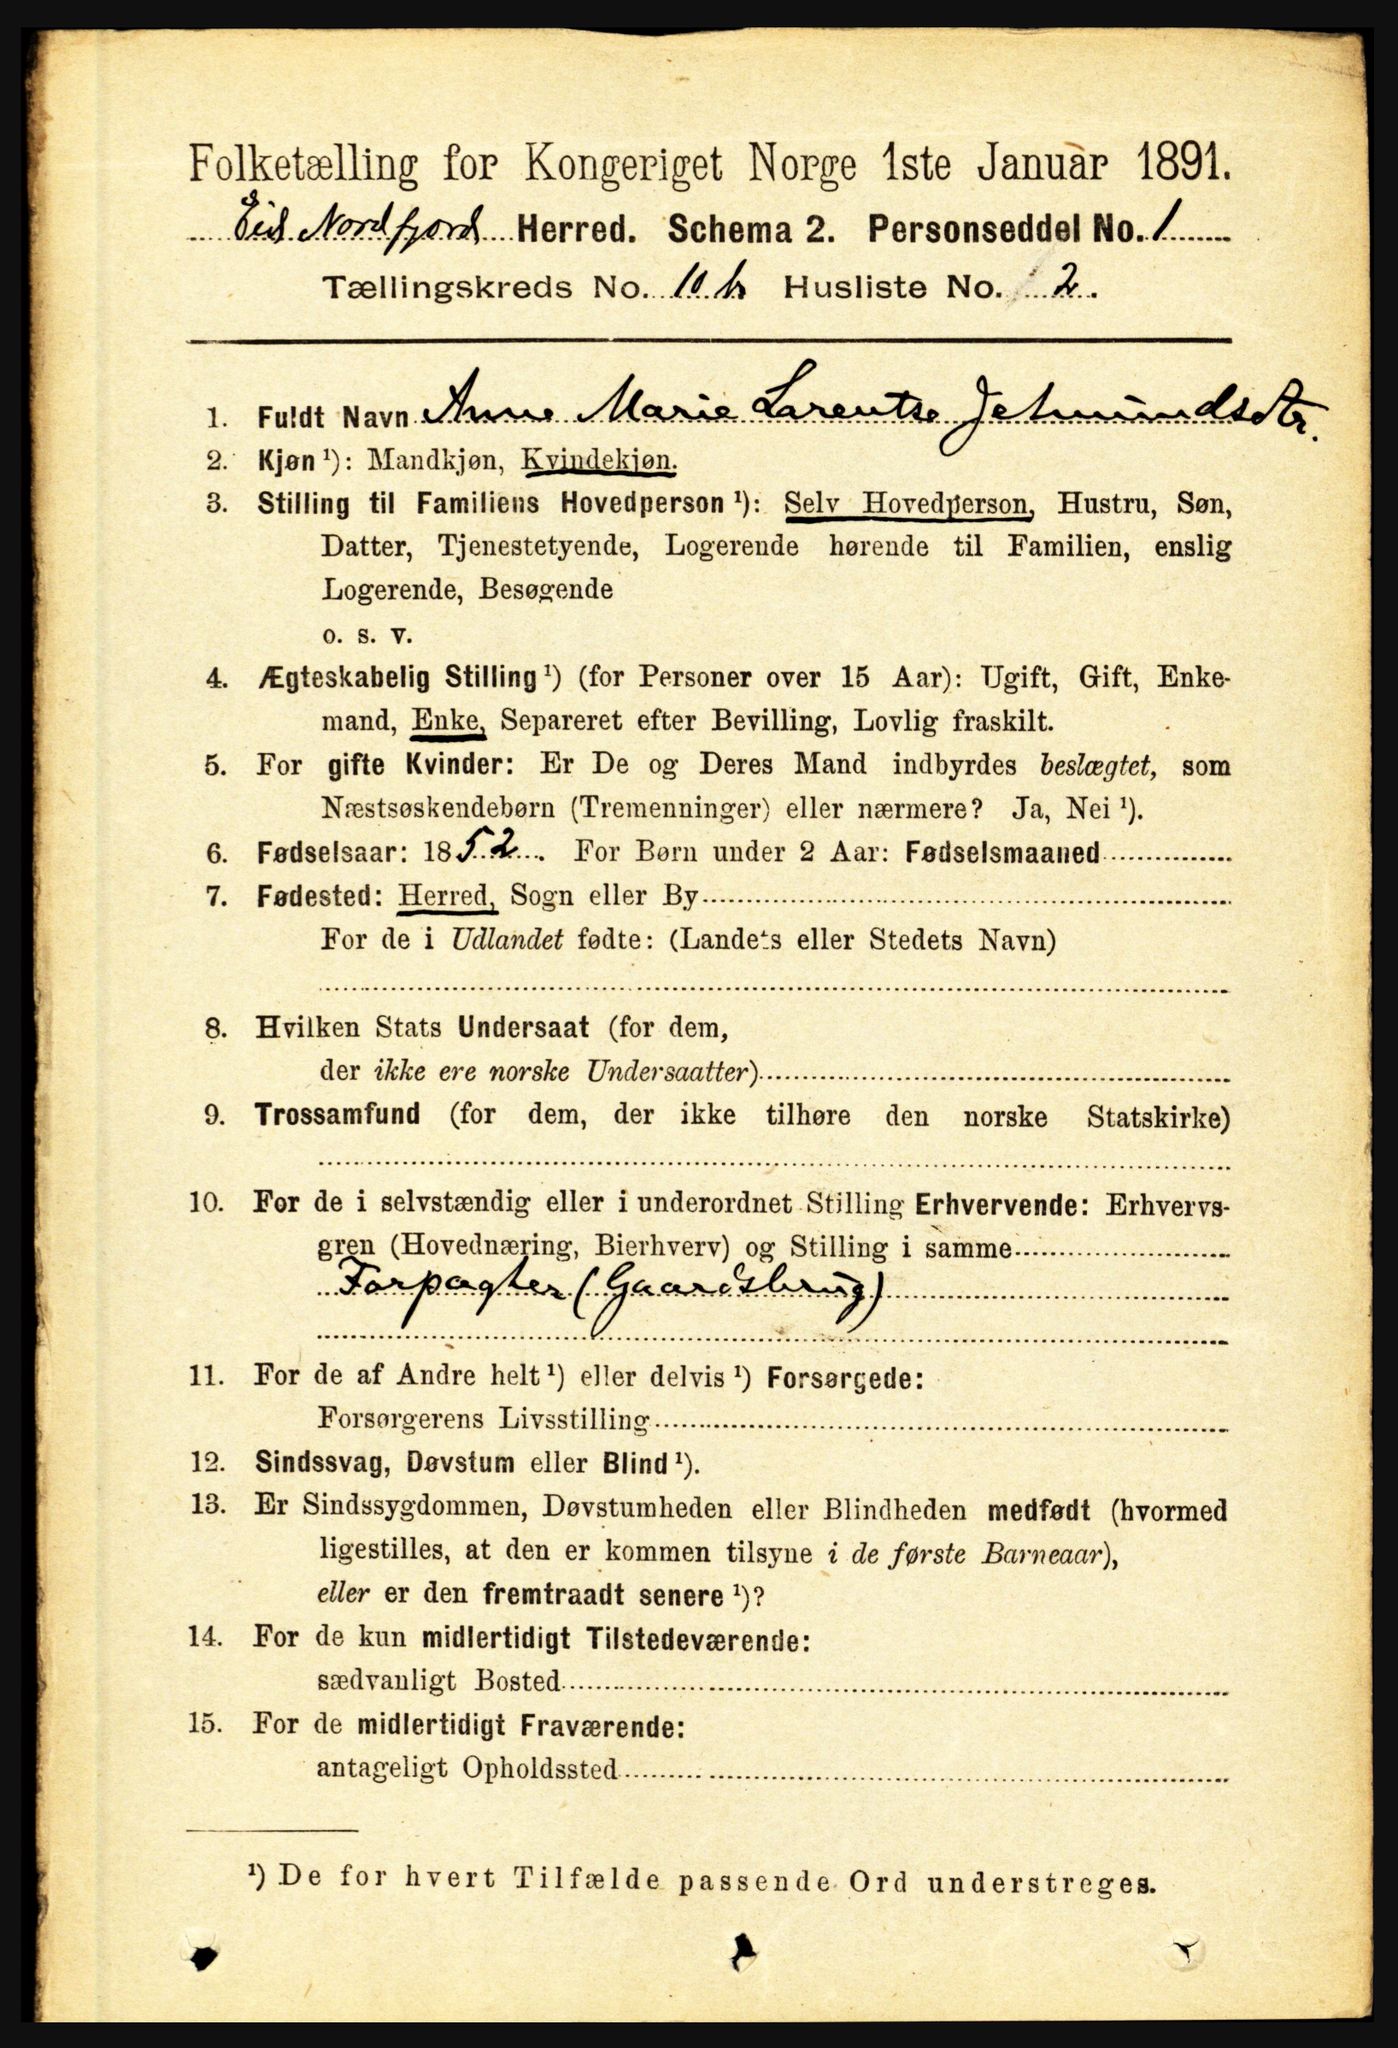 Folketælling for Kongeriget Norge 1ste Januar 1891.
Eid Nordfjord Herred. Schema 2. Personseddel No. 1
Tællingskreds No. 10 b Husliste No. 2.
1. Fuldt Navn Anne Marie Larentse Jetmundsdtr.
2. Kjøn ¹): Mandkjøn, Kvindekjøn.
3. Stilling til Familiens Hovedperson ¹): Selv Hovedperson, Hustru, Søn,
Datter, Tjenestetyende, Logerende hørende til Familien, enslig
Logerende, Besøgende
o. s. v.
4. Ægteskabelig Stilling ¹) (for Personer over 15 Aar): Ugift, Gift, Enke-
mand, Enke, Separeret efter Bevilling, Lovlig fraskilt.
5. For gifte Kvinder: Er De og Deres Mand indbyrdes beslægtet, som
Næstsøskendebørn (Tremenninger) eller nærmere? Ja, Nei ¹).
6. Fødselsaar: 1852. For Børn under 2 Aar: Fødselsmaaned
7. Fødested: Herred, Sogn eller By
For de i Udlandet fødte: (Landets eller Stedets Navn)
8. Hvilken Stats Undersaat (for dem,
der ikke ere norske Undersaatter)
9. Trossamfund (for dem, der ikke tilhøre den norske Statskirke)
10. For de i selvstændig eller i underordnet Stilling Erhvervende: Erhvervs-
gren (Hovednæring, Bierhverv) og Stilling i samme
Forpagter (Gaardsbrug)
11. For de af Andre helt ¹) eller delvis ¹) Forsørgede:
Forsørgerens Livsstilling
12. Sindssvag, Døvstum eller Blind ¹).
13. Er Sindssygdommen, Døvstumheden eller Blindheden medfødt (hvormed
ligestilles, at den er kommen tilsyne i de første Barneaar),
eller er den fremtraadt senere ¹)?
14. For de kun midlertidigt Tilstedeværende:
sædvanligt Bosted
15. For de midlertidigt Fraværende:
antageligt Opholdssted
¹) De for hvert Tilfælde passende Ord understreges.